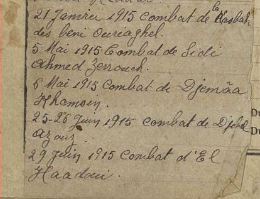 21 Janvier 1915 Combat de la Kasbah
des beni Ouriaghel.
5 Mai 1915 Combat de Sidi
Ahmed Zerrouck.
6 Mai 1915 Combat de Djemâa
Khamsin.
25-26 Juin 1915 Combat de Djbel
Azouz
29 Juin 1915 Combat d'El
Haadoui.